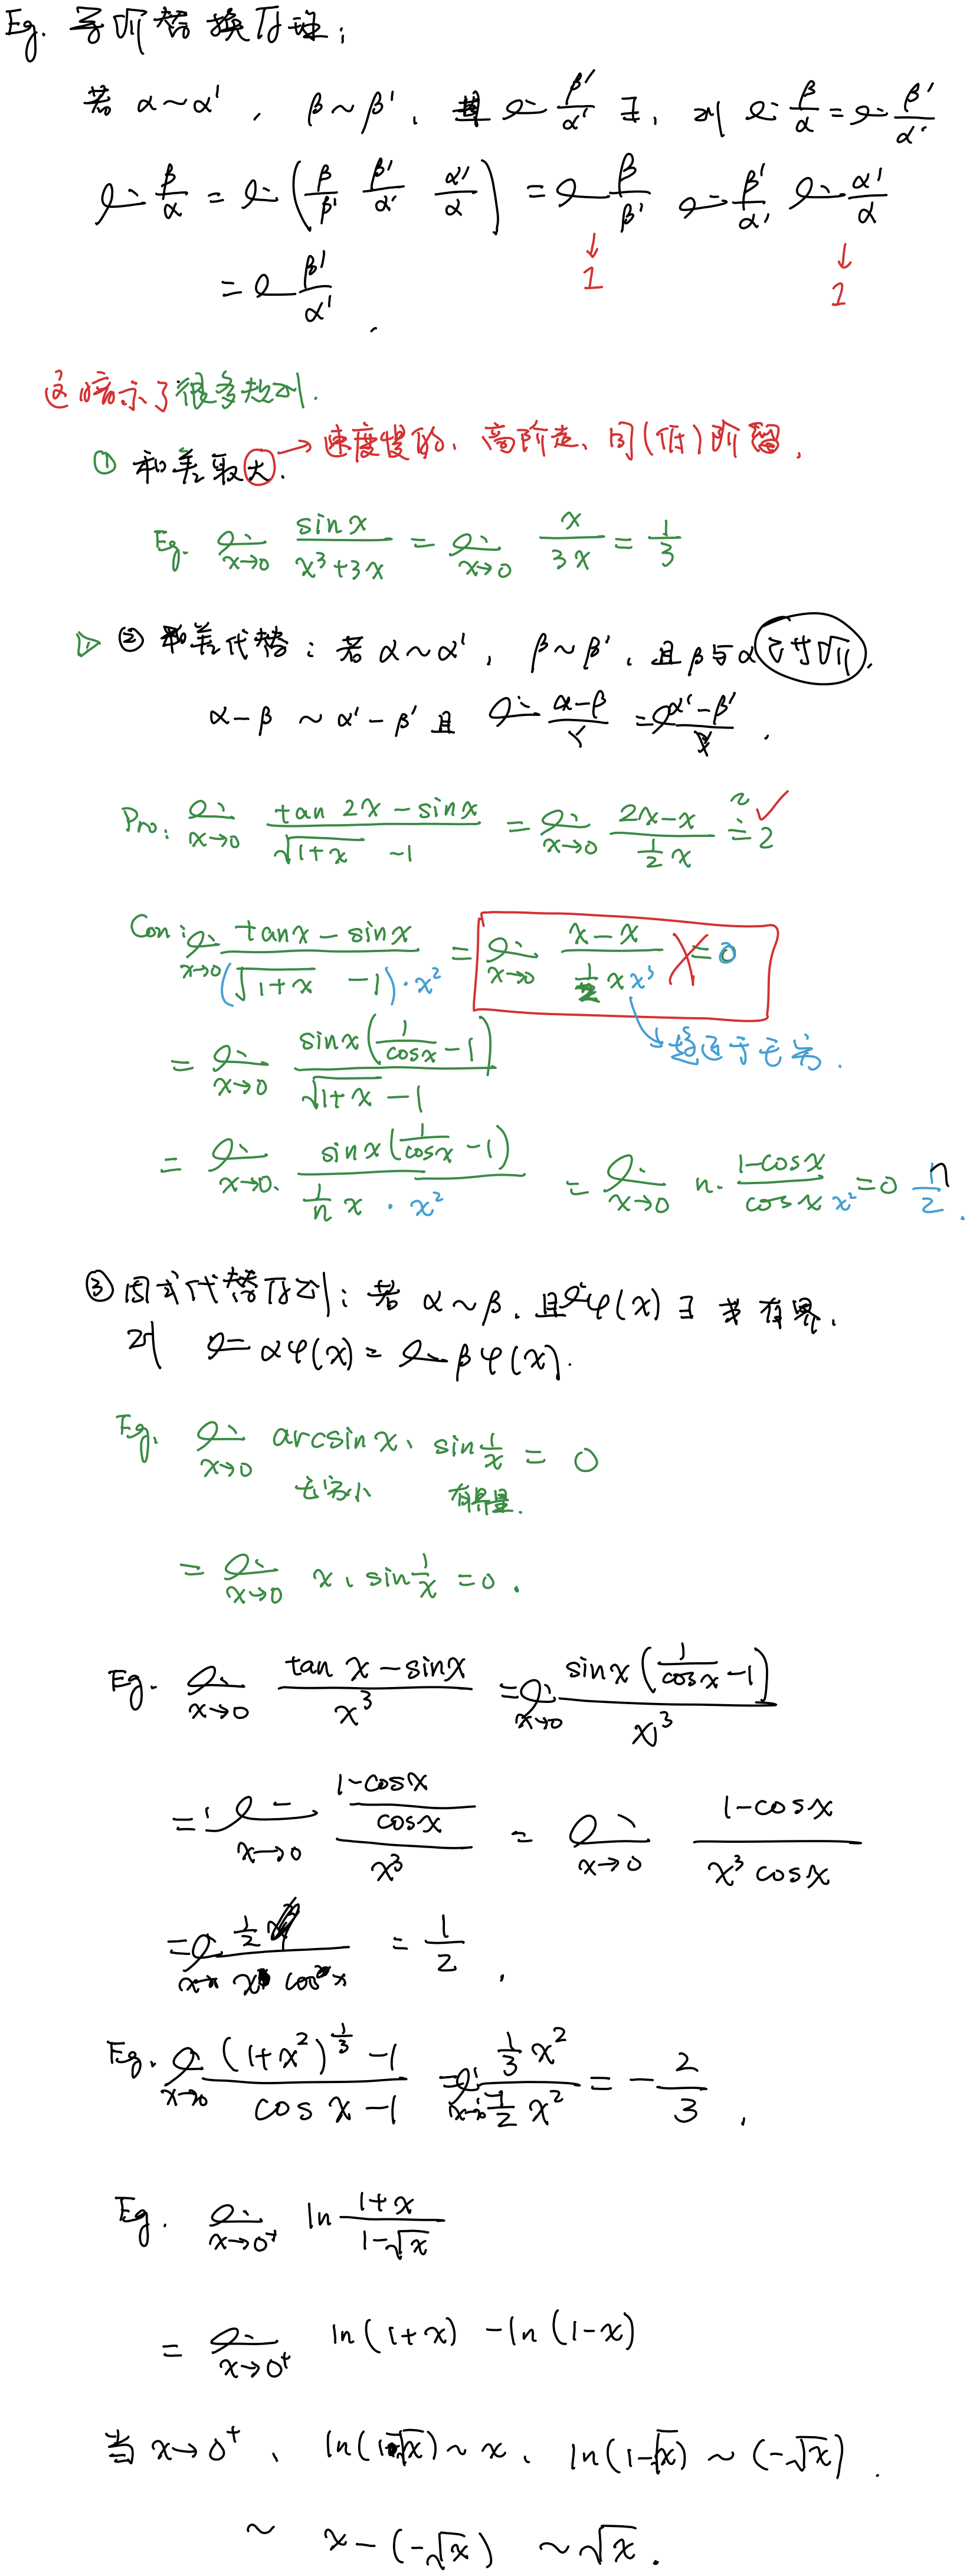 Eg. 等价替换原理:
若 α~α', β~β', 且 lim β'/α' ∃, 则 lim β/α = lim β'/α'
lim β/α = lim (β/β' β'/α' α'/α) = lim β/β' lim β'/α' lim α'/α
↓ 1 ↓ 1
= lim β'/α'.
这暗示了很多规则.
① 和差取大. → 速度慢的、高阶走、同(低)阶留.
Eg. lim x→0 sinx/(x³+3x) = lim x→0 x/3x = 1/3
② 和差代替: 若 α~α', β~β', 且 β与α 不等价.
α-β ~ α'-β' 且 lim (α-β)/γ = lim (α'-β')/γ.
Pro: lim x→0 (tan 2x - sinx)/(√(1+x) -1) = lim x→0 (2x-x)/(½x) = 2 ✓
Con: lim x→0 (tanx - sinx)/((√(1+x) -1)·x²) = lim x→0 (x-x)/(x x³) = 0
→ 趋近于无穷.
= lim x→0 sinx(1/cosx -1)/(√(1+x) -1)
= lim x→0. sinx(1/cosx -1)/(1/n x · x²) = lim x→0 n· (1-cosx)/(cosx x²) = 0 n/2.
③ 因式代替原则: 若 α~β, 且 lim φ(x) ∃ 或有界,
则 lim αφ(x) = lim βφ(x).
Eg. lim x→0 arcsinx · sin 1/x = 0
无穷小 有界量.
= lim x→0 x · sin 1/x = 0.
Eg. lim x→0 (tan x - sinx)/x³ = lim x→0 sinx(1/cosx -1)/x³
= lim x→0 ((1-cosx)/cosx)/x³ = lim x→0 (1-cosx)/(x³ cosx)
= 1/2.
Eg. lim x→0 ((1+x²)^(1/3) -1)/(cos x -1) = lim x→0 (1/3 x²)/(-1/2 x²) = -2/3,
Eg. lim x→0⁺ ln (1+x)/(1-√x)
= lim x→0⁺ ln(1+x) -ln(1-x)
当 x→0⁺, ln(1+x) ~ x, ln(1-√x) ~ (-√x).
~ x-(-√x) ~ √x.